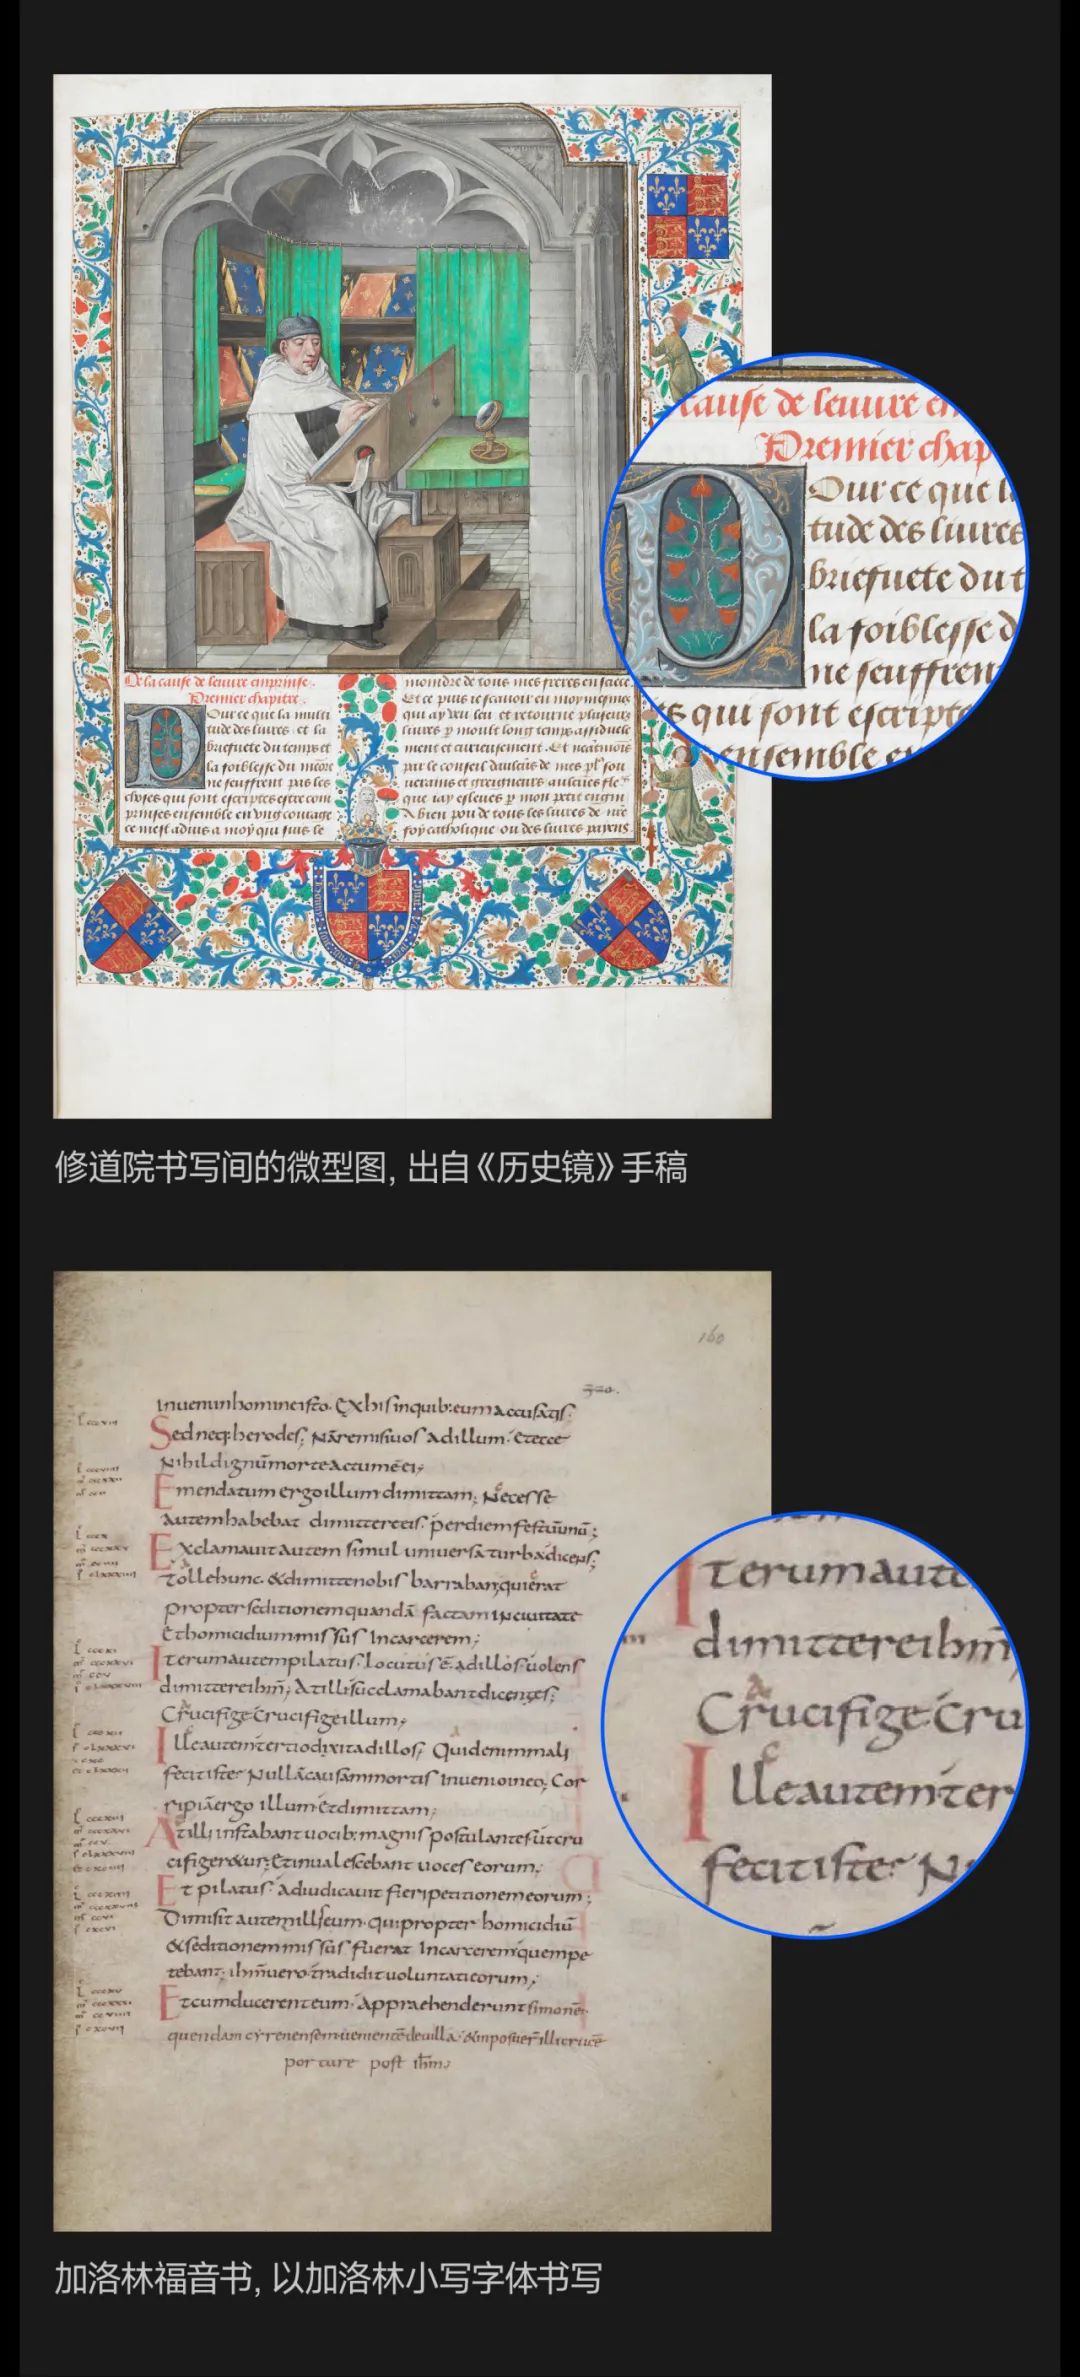 De la cause de leuure emprise.
Premier chapitre.
Pour ce que la multi
tude des liures et la
briefuete du temps et
la foiblesse du
ne seuffrent pas les
choses qui sont escriptes estre com
prinses ensemble en vng courage
ce mest aduis a moy qui suis le
moindre de tous mes freres en
Et ce puis ie scauoir en moymesmes
qui ay veu leu et retourne pluseurs
liures moult long temps assiduele
ment et curieusement. Et
par le conseil daulcuns de mes sou
uerains et greigneurs aulcunes
que iay esleues mon petit engin
A bien pou de tous les liures de nre
foy catholique ou des liures payens
cause de leuure em
Premier chap
Our ce que l
tude des liures
briefuete du t
la foiblesse d
ne seuffren
es qui sont escripte
ensemble e
修道院书写间的微型图, 出自《历史镜》手稿
160
Inuenunhomineisto. Exhisinquib:eumaccusatis:
Sedneq:herodes; Nāremisiuos adillum. Etecce
Nihildignūmorteactumēei;
Emendatum ergoillumdimittam; Necesse
autemhabebat dimittereeis. perdiemfestūunū;
Exclamauitautem simul uniuersaturbadicens;
tollehunc. &dimittenobis barrabanquierat
propterseditionemquandā factamInciuitate
Ethomicidiummissus Incarcerem;
Iterumautempilatus. locutusē adillosuolens
dimittereihm̄; Atillisucclamabantdicentes;
CrucifigeCrucifigeillum;
Illeautemtertiodixitadillos; Quidenimmali
fecitiste? Nullācausammortis Inuenioineo; Cor
ripiāergo illumetdimittam;
Atilliinstabantuocib:magnis postulantesutcru
cifigeretur; Etinualescebant uoces eorum;
Et pilatus. adiudicauit fieripetitionemeorum;
Dimisit autemillis eum. quipropter homicidiū
&seditionemmissus fuerat Incarceremquempe
tebant. ihm̄uero.tradidituoluntatieorum;
Etcumducerenteum. Appraehenderuntsimonē.
quendam cyrenensemuenientēdeuilla. &imposuer̄illicrucē
portare post ihm̄;
Iterumaute
dimittereihm̄
CrucifigeCru
Illeautemter
fecitiste? N
加洛林福音书, 以加洛林小写字体书写